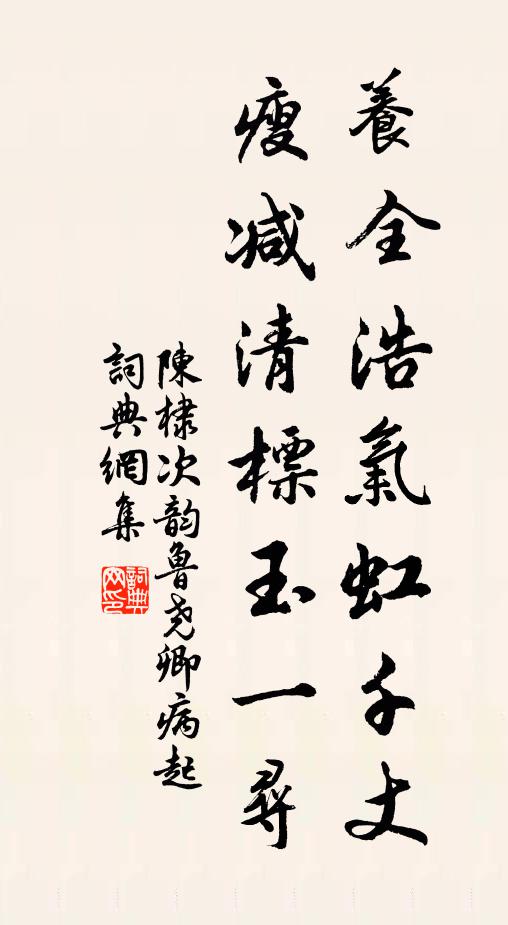 養全浩氣虹千丈
瘦减清標玉一尋
陳棣次韵魯堯卿病起
詞典網集
詞典
网印